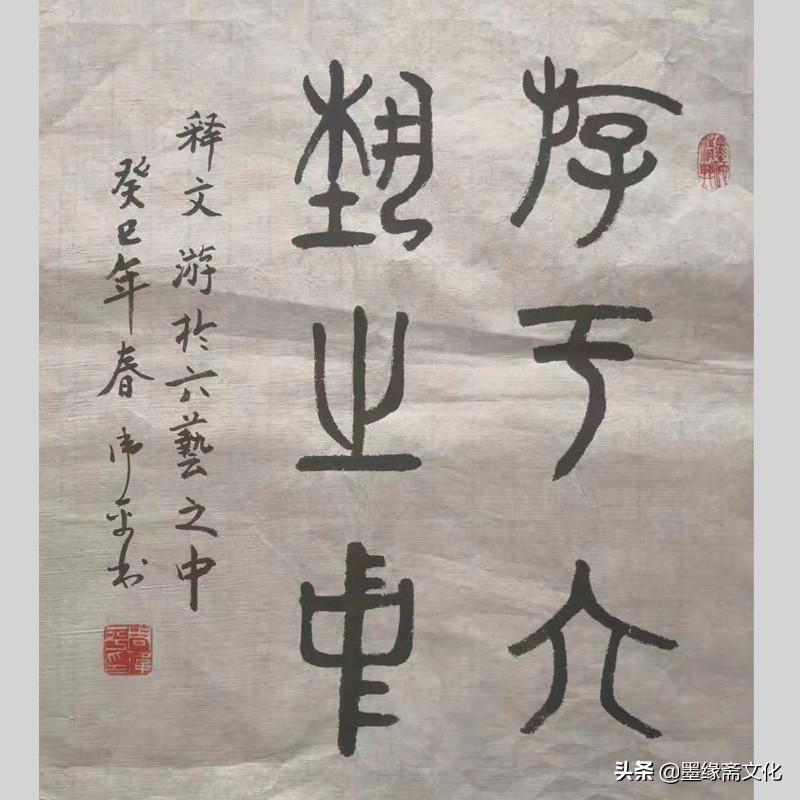 游于六
埶之中
释文 游於六藝之中
癸巳年春 伟平书
头条 @墨缘斋文化